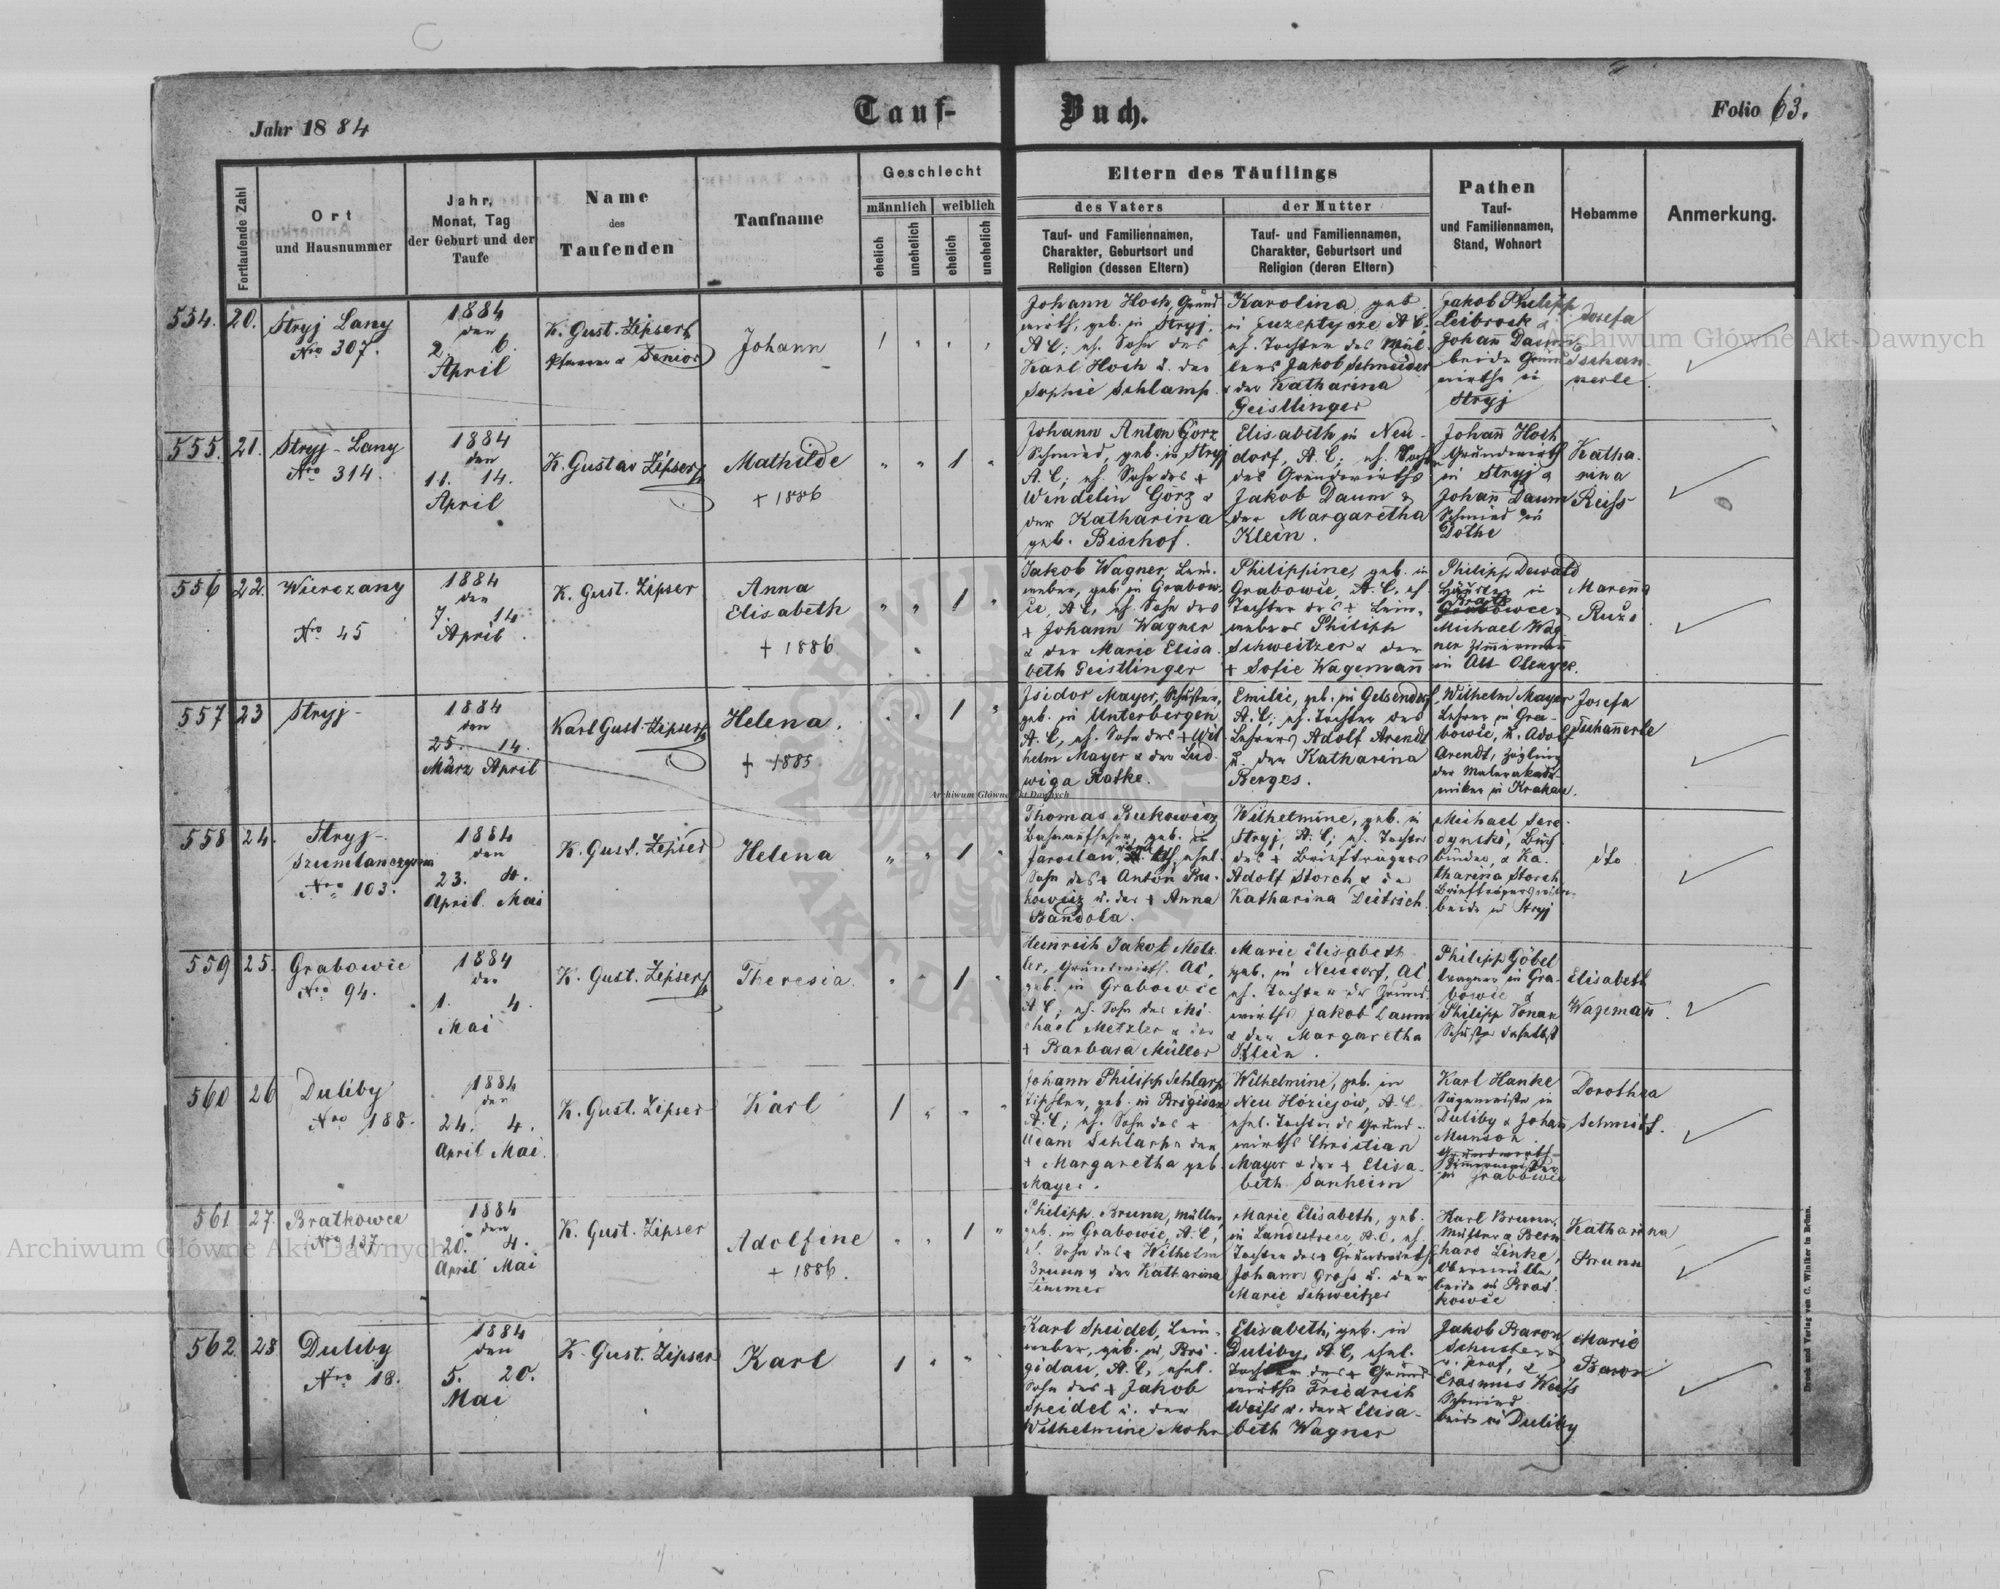 Jahr 1884
Tauf-Buch.
Folio 63.
Fortlaufende Zahl
Ort
und Hausnummer
Jahr,
Monat, Tag
der Geburt und der
Taufe
Name
des
Taufenden
Taufname
Geschlecht
männlich
weiblich
ehelich
unehelich
ehelich
unehelich
Eltern des Täuflings
des Vaters
Tauf- und Familiennamen,
Charakter, Geburtsort und
Religion (dessen Eltern)
der Mutter
Tauf- und Familiennamen,
Charakter, Geburtsort und
Religion (deren Eltern)
Pathen
Tauf-
und Familiennamen,
Stand, Wohnort
Hebamme
Anmerkung.
554. 20.
Stryj Lany
Nro 307.
1884
den
2. 6.
April
K. Gust. Zipser
Pfarrer & Senior
Johann
1
Johann Hoch, Grund
wirth, geb. in Stryj,
A.C; eh. Sohn des
Karl Hoch u. der
Sophie Schlamp.
Karolina geb
in A.C.
eh. Tochter des Mül
lers Jakob Schneider
& der Katharina
Geistlinger
Jakob Philipp
Leibrock &
Johann Daum
beide Grund
wirthe in
Stryj
Josefa
Tschan-
nerle.
555. 21.
Stryj-Lany
Nro 314.
1884
den
11. 14.
April
K. Gustav Zipser
Mathilde
+ 1886
1
Johann Anton Görz
Schmied, geb. in Stryj
A.C; eh. Sohn des +
Wendelin Görz &
der Katharina
geb. Bischof.
Elisabeth in Neu-
dorf, A.C; eh. Tochter
des Grundwirths
Jakob Daum &
der Margaretha
Klein.
Johañ Hoch
Grundwirth
in Stryj &
Johañ Daum
Schmied in
Dothe
Katha-
rina
Reiss
556 22.
Wierczany
Nro 45
1884
den
7. 14.
April
K. Gust. Zipser
Anna
Elisabeth
+ 1886
1
Jakob Wagner, Lein-
weber, geb. in Grabow-
ce, A.C, eh. Sohn des
+ Johann Wagner
& der Marie Elisa-
beth Geistlinger
Philippine, geb. in
Grabowie, A.C. eh
Tochter des + Lein-
webers Philipp
Schweitzer & der
+ Sofie Wagemañ
Philipp Dewald
in
Grabowce &
Michael Wag-
ner Zimmermañ
in Alt Olexyce.
Mareña
557 23
Stryj-
1884
den
25. 14.
März April
Karl Gust. Zipser
Helena.
+ 1885
1
Isidor Mayer, Schuster,
geb. in Unterbergen
A.C, eh. Sohn des + Wil
helm Mayer & der Lud-
wiga Rathe.
Emilie, geb. in Gelsendorf
A.C; eh. Tochter des
Lehrers Adolf Arendt
u. der Katharina
Berges.
Wilhelm Mayer
Lehrer in Gra-
bowie, u. Adolf
Arendt, Zögling
der Malerakade-
mike in Krakau.
Josefa
Tschañerle
558 24.
Stryj-
Nro 103.
1884
den
23. 4.
April Mai
K. Gust. Zipser
Helena
1
Thomas Bukowicz
Bahnaufseher, geb. in
Jaroslau, ehel.
Sohn des + Anton Bu-
kowicz u. der + Anna
Bandola.
Wilhelmine, geb. in
Stryj, A.C; eh. Tochter
des + Briefträgers
Adolf Storch & der
Katharina Deitrich
Michael Sere-
dynski, Buch
binder, & Ka-
tharina Storch
Briefträgerswitwe
beide in Stryj
dto
559 25.
Grabowie
Nro 94.
1884
den
1. 4.
Mai
K. Gust. Zipser
Theresia
1
Heinrich Jakob Metz
ler, Grundwirth. AC,
geb. in Grabowie
A.C; eh. Sohn des Mi-
chael Metzler & der
+ Barbara Müller
Marie Elisabeth
geb. in Neudorf, AC
eh. Tochter des Grund-
wirths Jakob Daum
& der Margaretha
Klein.
Philipp Göbel
Wagner in Gra-
bowie &
Philipp Konan
Schuster daselbst
Elisabeth
Wagemañ.
560 26
Duliby
Nro 188.
1884
den
24. 4.
April Mai.
K. Gust. Zipser
Karl
1
Johann Philipp Schlarp
Tischler, geb. in Brigidau
A.C; eh. Sohn des +
Adam Schlarp & der
+ Margaretha geb.
Mayer.
Wilhelmine, geb. in
Neu Hoziejow, A.C.
ehel. Tochter des Grund-
wirths Christian
Mayer & der + Elisa-
beth Sanheim
Karl Hanke
Sägemeister in
Duliby & Johañ
Munson
in Grabowie
Dorothea
Schmidt.
561 27.
Bratkowce
Nro 137
1884
den
20. 4.
April Mai
K. Gust. Zipser
Adolfine
+ 1886.
1
Philipp Brunn, Müller,
geb. in Grabowie, A.C,
eh. Sohn des + Wilhelm
Brunn & der Katharina
Zimmer
Marie Elisabeth, geb.
in Landestreu, A.C, eh.
Tochter des + Grundwirths
Johann Gross u. der
Marie Schweitzer
Karl Brunn,
Müller & Bern
hard Linke,
Obermüller
beide in Brat-
kowie
Katharina
Brunn
562. 28.
Duliby
Nro 18.
1884
den
5. 20.
Mai
K. Gust. Zipser
Karl
1
Karl Speidel, Lein-
weber, geb. in Bri-
gidau, A.C, ehel.
Sohn des + Jakob
Speidel u. der
Wilhelmine Mohr
Elisabeth, geb. in
Duliby, A.C, ehel.
Tochter des + Grund
wirths Friedrich
Weiss u. der + Elisa-
beth Wagner
Jakob Baron
Schuster
&
Erasmus Weiss
Schmied
beide in Duliby
Marie
Baron
Druck und Verlag von C. Winiker in Brünn.
Archiwum Główne Akt Dawnych
Archiwum Główne Akt Dawnych
Archiwum Główne Akt Dawnych
ARCHIWUM
AKT DAWNYCH